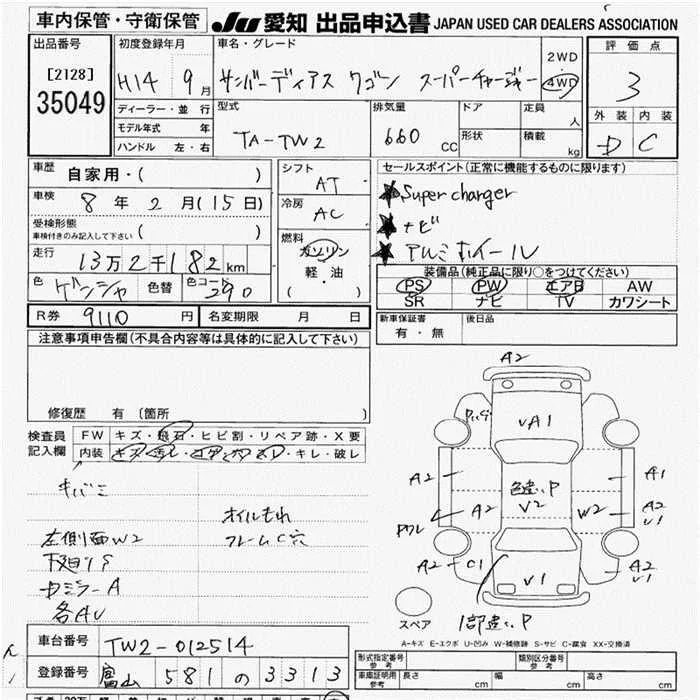 車内保管・守衛保管
JU 愛知 出品申込書 JAPAN USED CAR DEALERS ASSOCIATION
出品番号
[2128]
35049
初度登録年月
H14 9月
ディーラー・並行
モデル年式 年
ハンドル 左・右
車名・グレード
サンバーディアス ワゴン スーパーチャージャー
2WD
4WD
型式
TA-TW2
排気量
660 CC
ドア
形状
定員 人
積載 kg
評価点
3
外装 内装
D C
車歴 自家用・( )
車検 8年2月(15日)
受検形態
車検付きのみ記入して下さい ( )
走行 13万2千182km
色 ゲンシャ 色替 色コード 290
シフト
AT
冷房
AC
燃料
ガソリン
軽・油
( )
セールスポイント(正常に機能するものに限ります)
★Super charger
★ナビ
★アルミホイール
装備品(純正品に限り○をつけてください)
PS PW エアB AW
SR ナビ TV カワシート
R券 9110円 名変期限 月 日
新車保証書
有・無
後日品
注意事項申告欄(不具合内容等は具体的に記入して下さい)
修復歴 有 (箇所 )
検査員
記入欄
FW キズ・飛石・ヒビ割・リペア跡・X要
内装 キズ・汚レ・コゲ・穴・スレ・キレ・破レ
キバミ
左側面W2
下廻りS
カミラーA
各AU
オイルもれ
フレームC穴
A2
VA1
A2
A1
色違い、P
V2
A2
W2
A2
U1
Pワレ
A2
C1
V1
A2
U1
1部違い、P
スペア
A-キズ E-エクボ U-凹み W-補修跡 S-サビ C-腐食 XX-交換済
車台番号 TW2-012514
登録番号 富山 581 の 3313
形式指定番号
参考
類別区分番号
参考
車庫証明用
参考
長さ cm 幅 cm 高さ cm